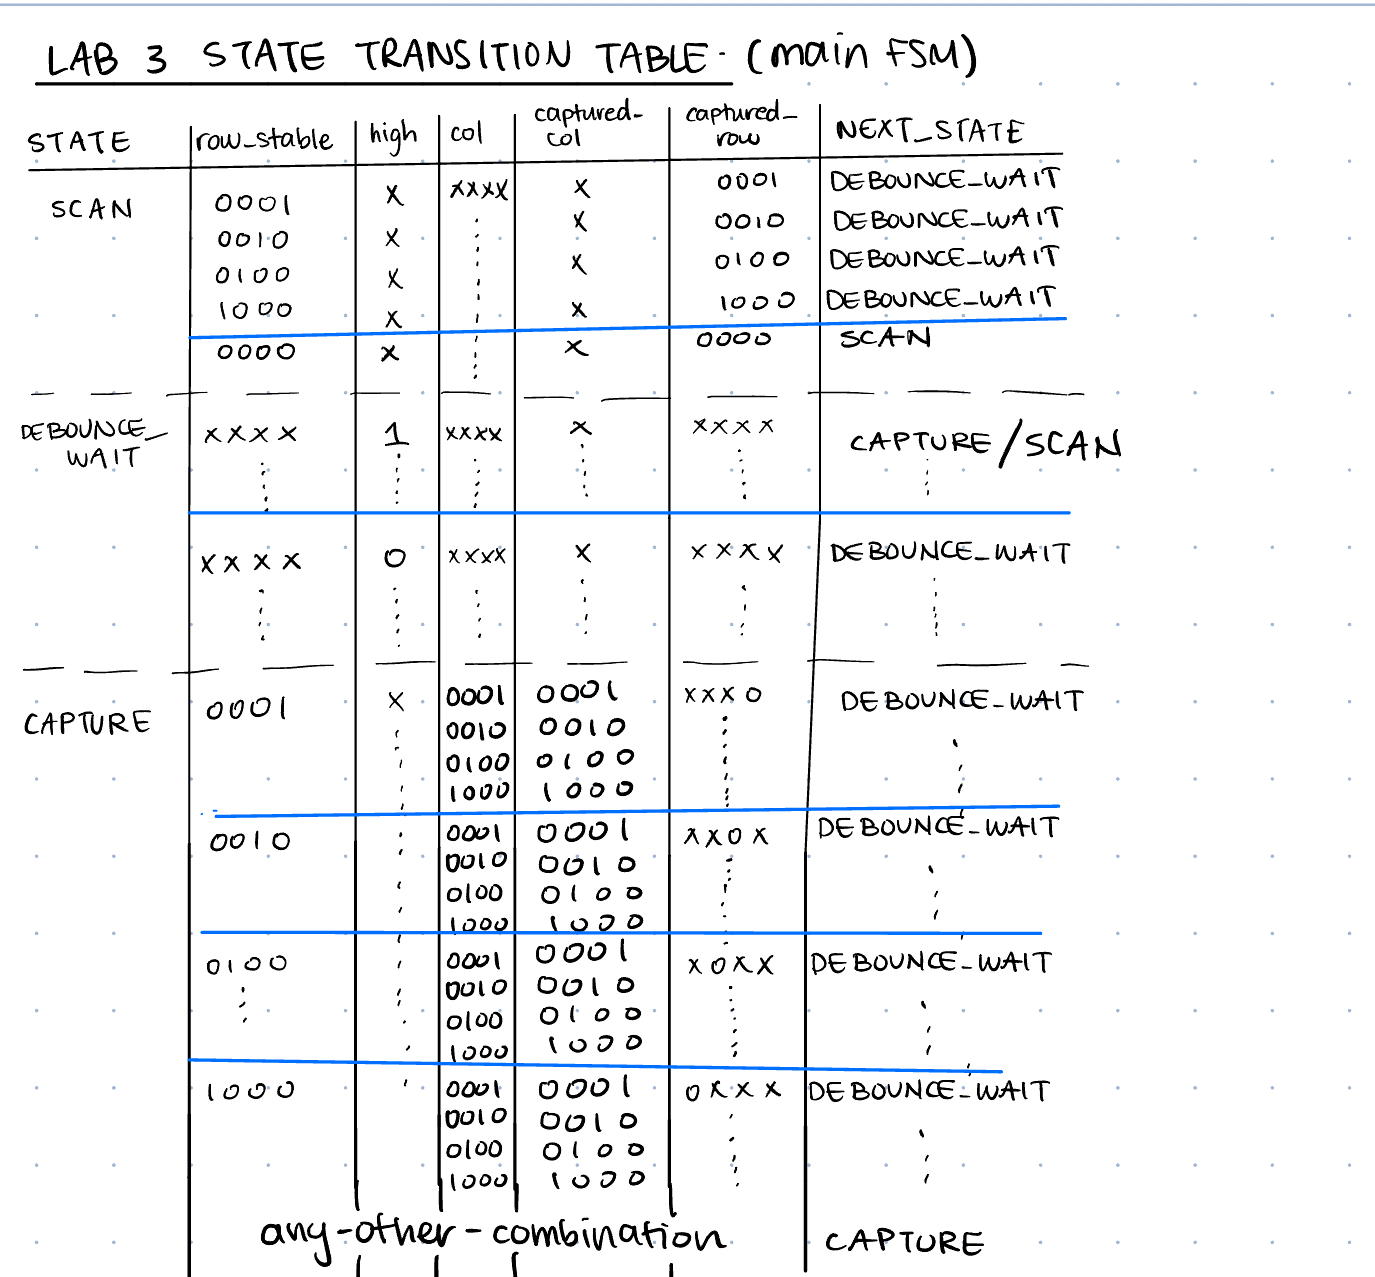 LAB 3 STATE TRANSITION TABLE. (main FSM)
STATE row_stable high col captured_col captured_row NEXT_STATE
SCAN 0001 X XXXX X 0001 DEBOUNCE_WAIT
0010 X X 0010 DEBOUNCE_WAIT
0100 X X 0100 DEBOUNCE_WAIT
1000 X X 1000 DEBOUNCE_WAIT
0000 X X 0000 SCAN
DEBOUNCE_WAIT XXXX 1 XXXX X XXXX CAPTURE/SCAN
XXXX 0 XXXX X XXXX DEBOUNCE_WAIT
CAPTURE 0001 X 0001 0001 XXX0 DEBOUNCE_WAIT
0010 0010
0100 0100
1000 1000
0010 0001 0001 XX0X DEBOUNCE_WAIT
0010 0010
0100 0100
1000 1000
0100 0001 0001 X0XX DEBOUNCE_WAIT
0010 0010
0100 0100
1000 1000
1000 0001 0001 0XXX DEBOUNCE_WAIT
0010 0010
0100 0100
1000 1000
any-other-combination CAPTURE